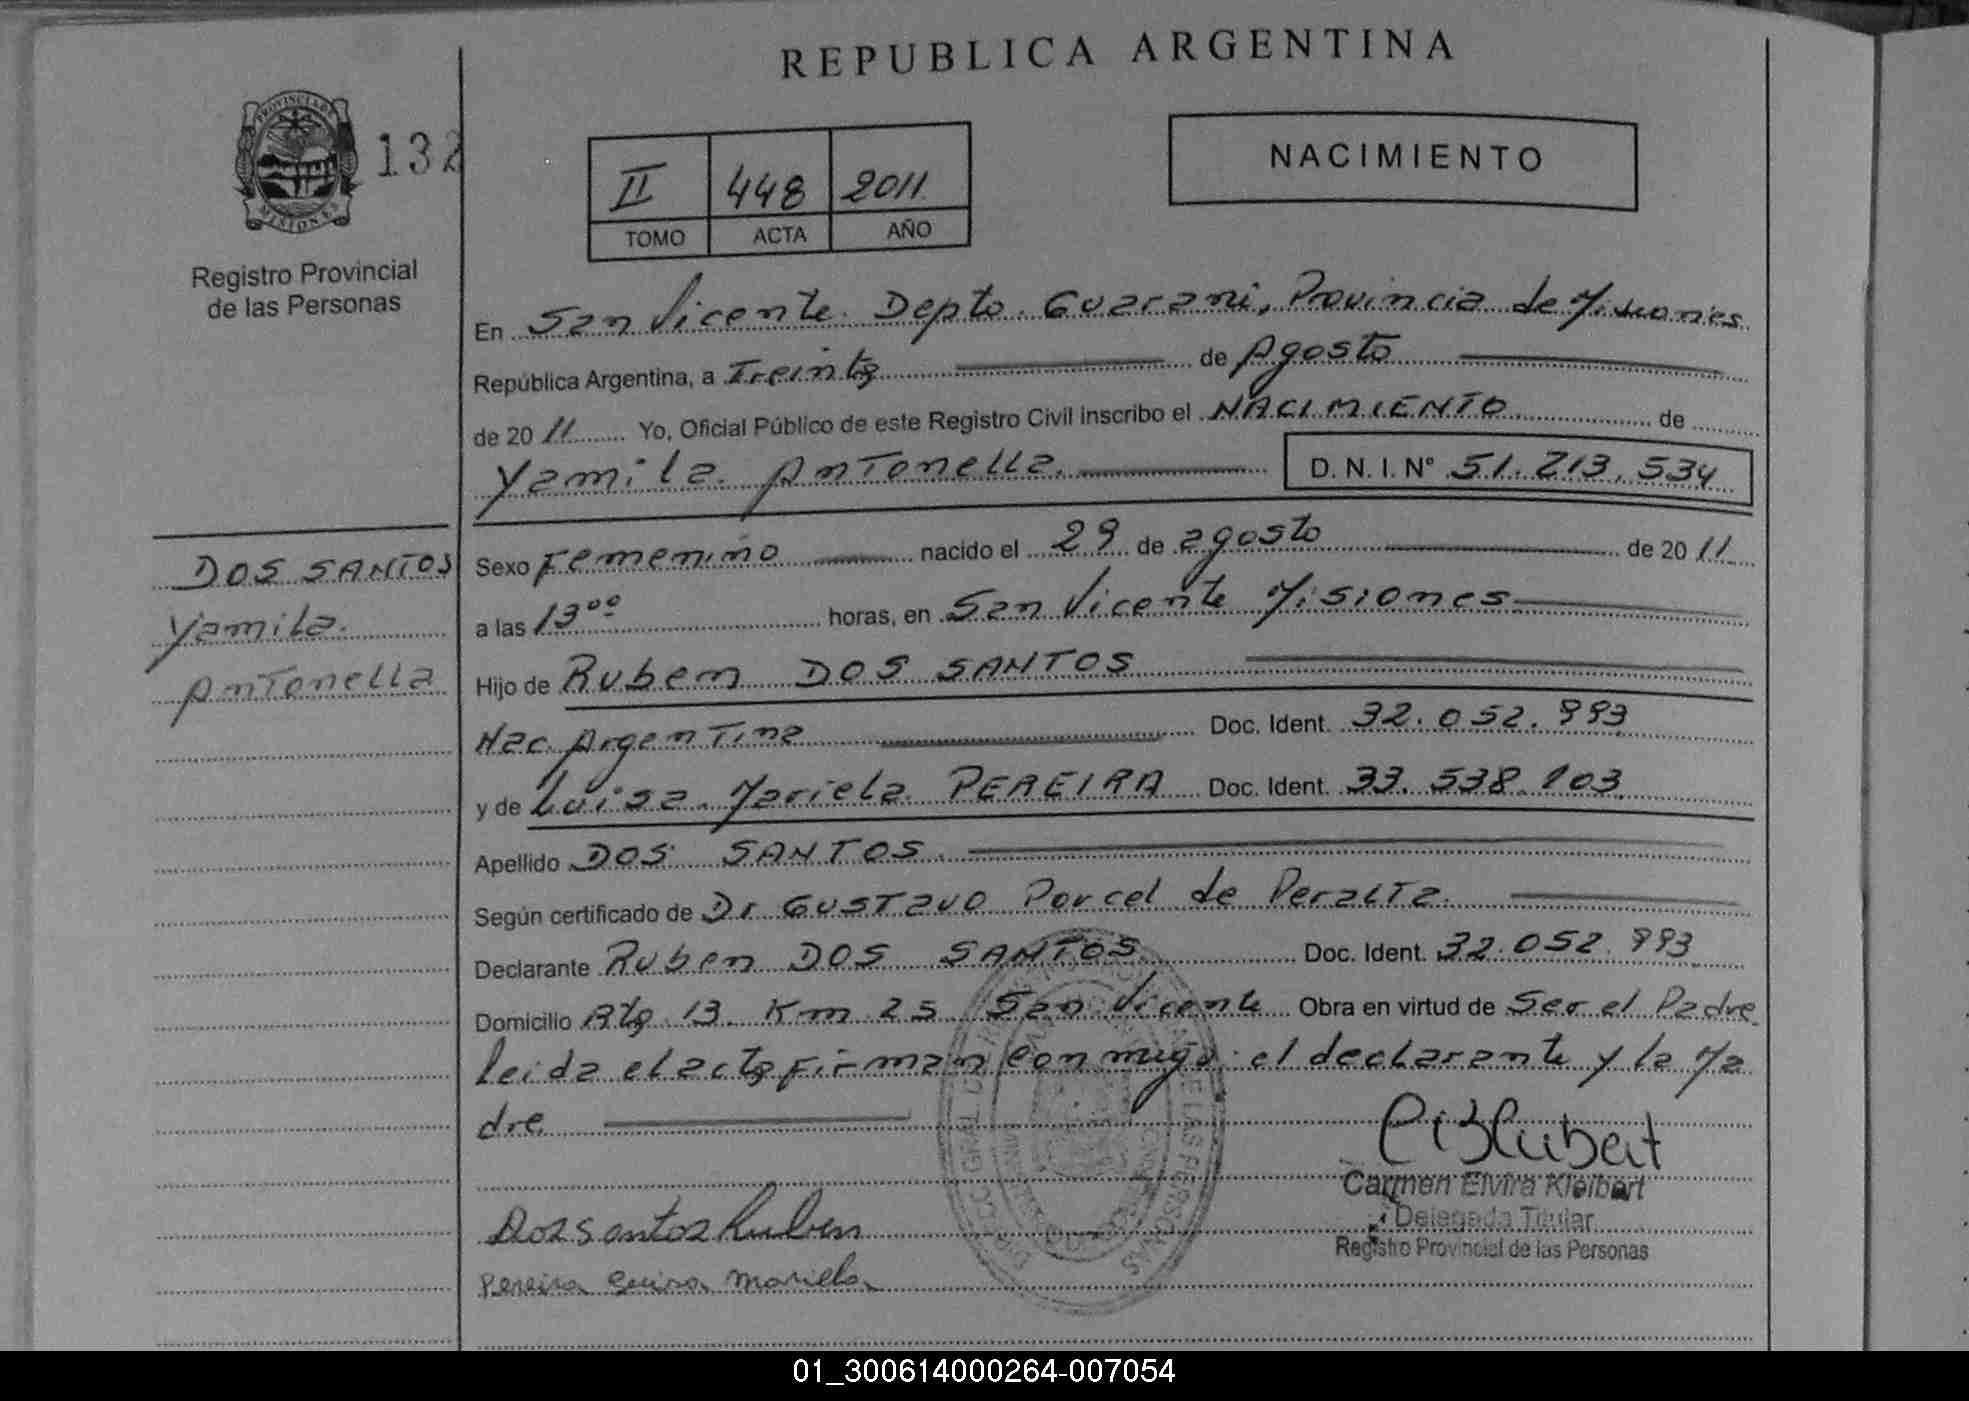 REPUBLICA ARGENTINA
PROVINCIA DE
MISIONES
132
Registro Provincial
de las Personas
II 448 2011
TOMO ACTA AÑO
NACIMIENTO
En San Vicente Depto. Guarani, Provincia de Misiones
República Argentina, a Treinta de Agosto
de 20 11 Yo, Oficial Público de este Registro Civil inscribo el NACIMIENTO de
Yamila Antonella. D. N. I. Nº 51.213.534
DOS SANTOS
Yamila
Antonella
Sexo Femenino nacido el 29 de agosto de 20 11
a las 13 00 horas, en San Vicente Misiones
Hijo de Ruben DOS SANTOS
Nac. Argentina Doc. Ident. 32.052.993
y de Luisa Mariela PEREIRA Doc. Ident. 33.538.103
Apellido DOS SANTOS
Según certificado de Dr Gustavo Porcel de Peralta.
Declarante Ruben DOS SANTOS Doc. Ident. 32.052.993
Domicilio Rta 13 Km 25 San Vicente Obra en virtud de Ser el Padre
leida el acta firman conmigo el declarante y la Ma
dre
Carmen Elvira Kleibert
Delegada Titular
Registro Provincial de las Personas
Dos santos Ruben
Pereira Luisa Mariela
01_300614000264-007054